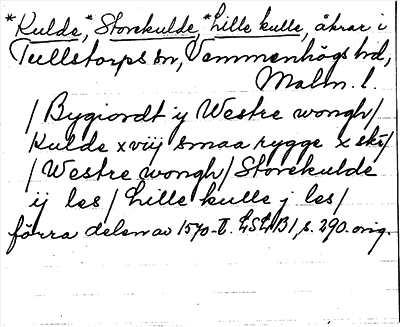 *Kulde, *Storekulde, *Lille kulle, åkrar i
Tullstorps sn, Vemmenhögs hd,
Malm. l.
/ Bygiordt y Westre wongh/
Kulde x viij smaa rygge x skr/
/ Westre wongh/ Storekulde
ij les / Lille kulle j les/
förra delen av 1570-t. LSLB1, s. 290. orig.